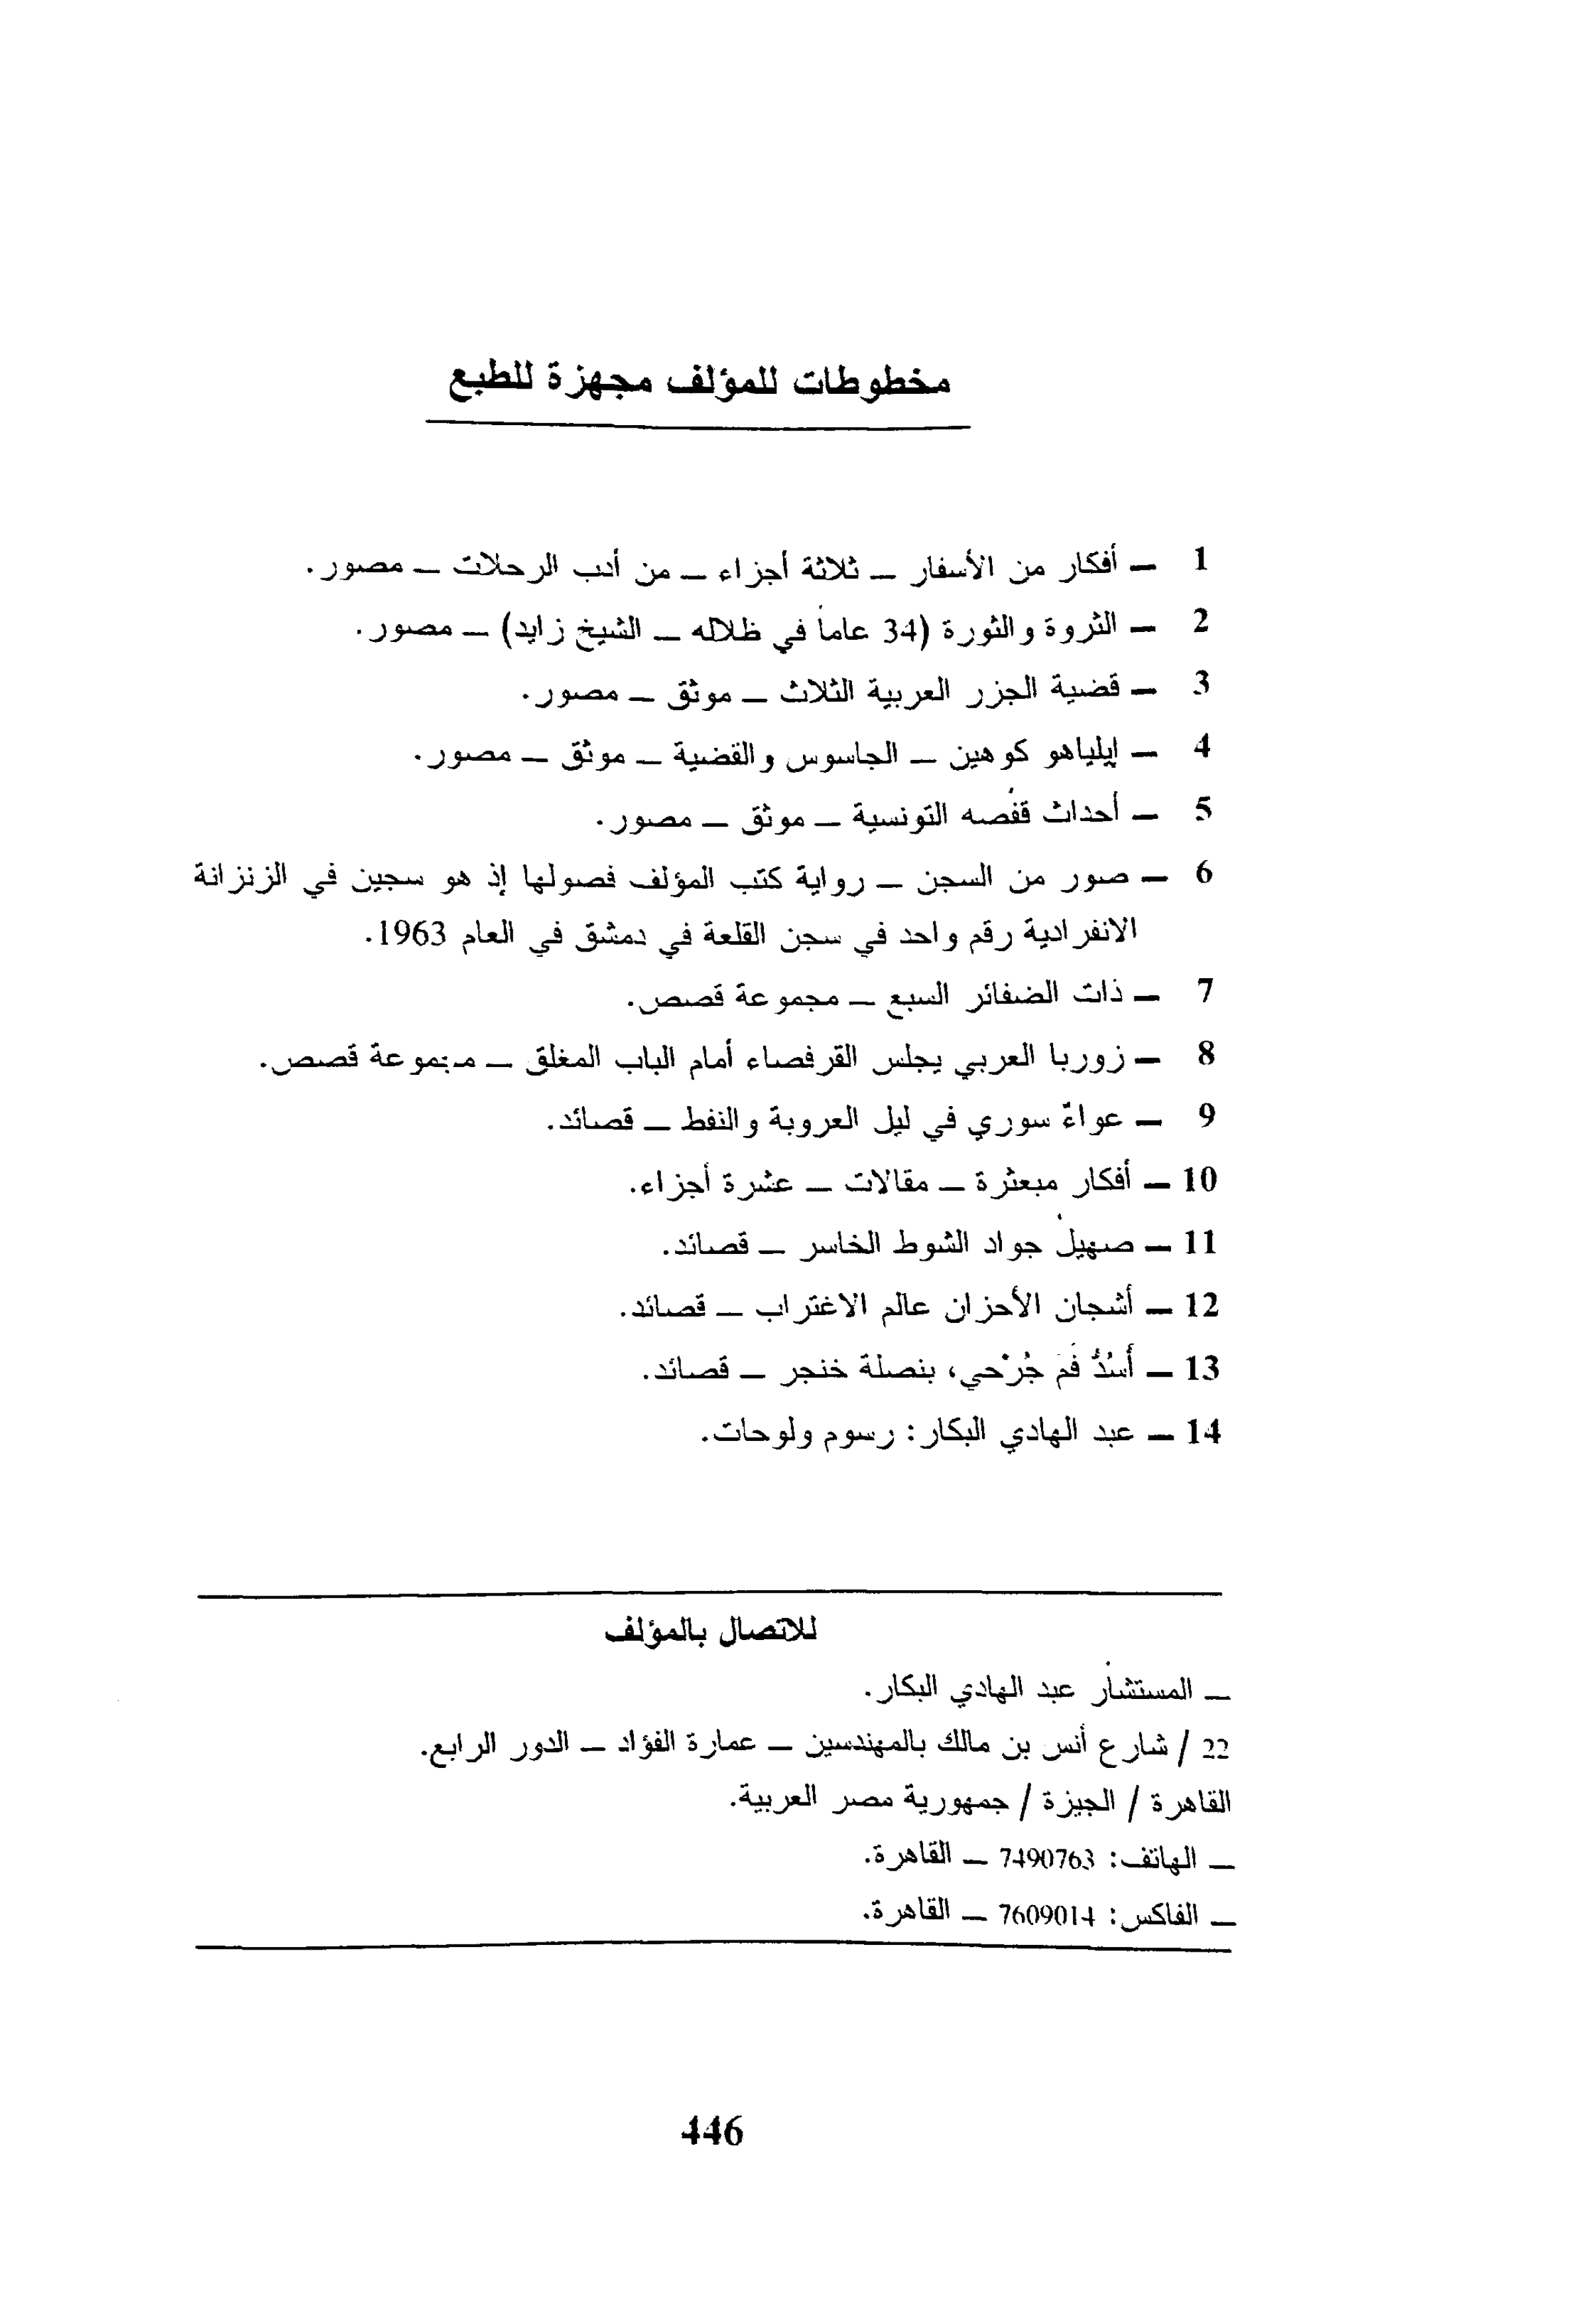 مخطوطات للمؤلف مجهزة للطبع
1 – أفكار من الأسفار – ثلاثة أجزاء – من أدب الرحلات – مصور.
2 – الثروة والثورة (34 عاماً في ظلاله – الشيخ زايد) – مصور.
3 – قضية الجزر العربية الثلاث – موثق – مصور.
4 – إيلياهو كوهين – الجاسوس والقضية – موثق – مصور.
5 – أحداث قفصه التونسية – موثق – مصور.
6 – صور من السجن – رواية كتب المؤلف فصولها إذ هو سجين في الزنزانة
الانفرادية رقم واحد في سجن القلعة في دمشق في العام 1963.
7 – ذات الضفائر السبع – مجموعة قصص.
8 – زوربا العربي يجلس القرفصاء أمام الباب المغلق – مجموعة قصص.
9 – عواءٌ سوري في ليل العروبة والنفط – قصائد.
10 – أفكار مبعثرة – مقالات – عشرة أجزاء.
11 – صهيلُ جواد الشوط الخاسر – قصائد.
12 – أشجان الأحزان عالم الاغتراب – قصائد.
13 – أَسُدُّ فَمَ جُرْحي، بنصلة خنجر – قصائد.
14 – عبد الهادي البكار: رسوم ولوحات.
للاتصال بالمؤلف
– المستشار عبد الهادي البكار.
22 / شارع أنس بن مالك بالمهندسين – عمارة الفؤاد – الدور الرابع.
القاهرة / الجيزة / جمهورية مصر العربية.
– الهاتف: 7490763 – القاهرة.
– الفاكس: 7609014 – القاهرة.
446